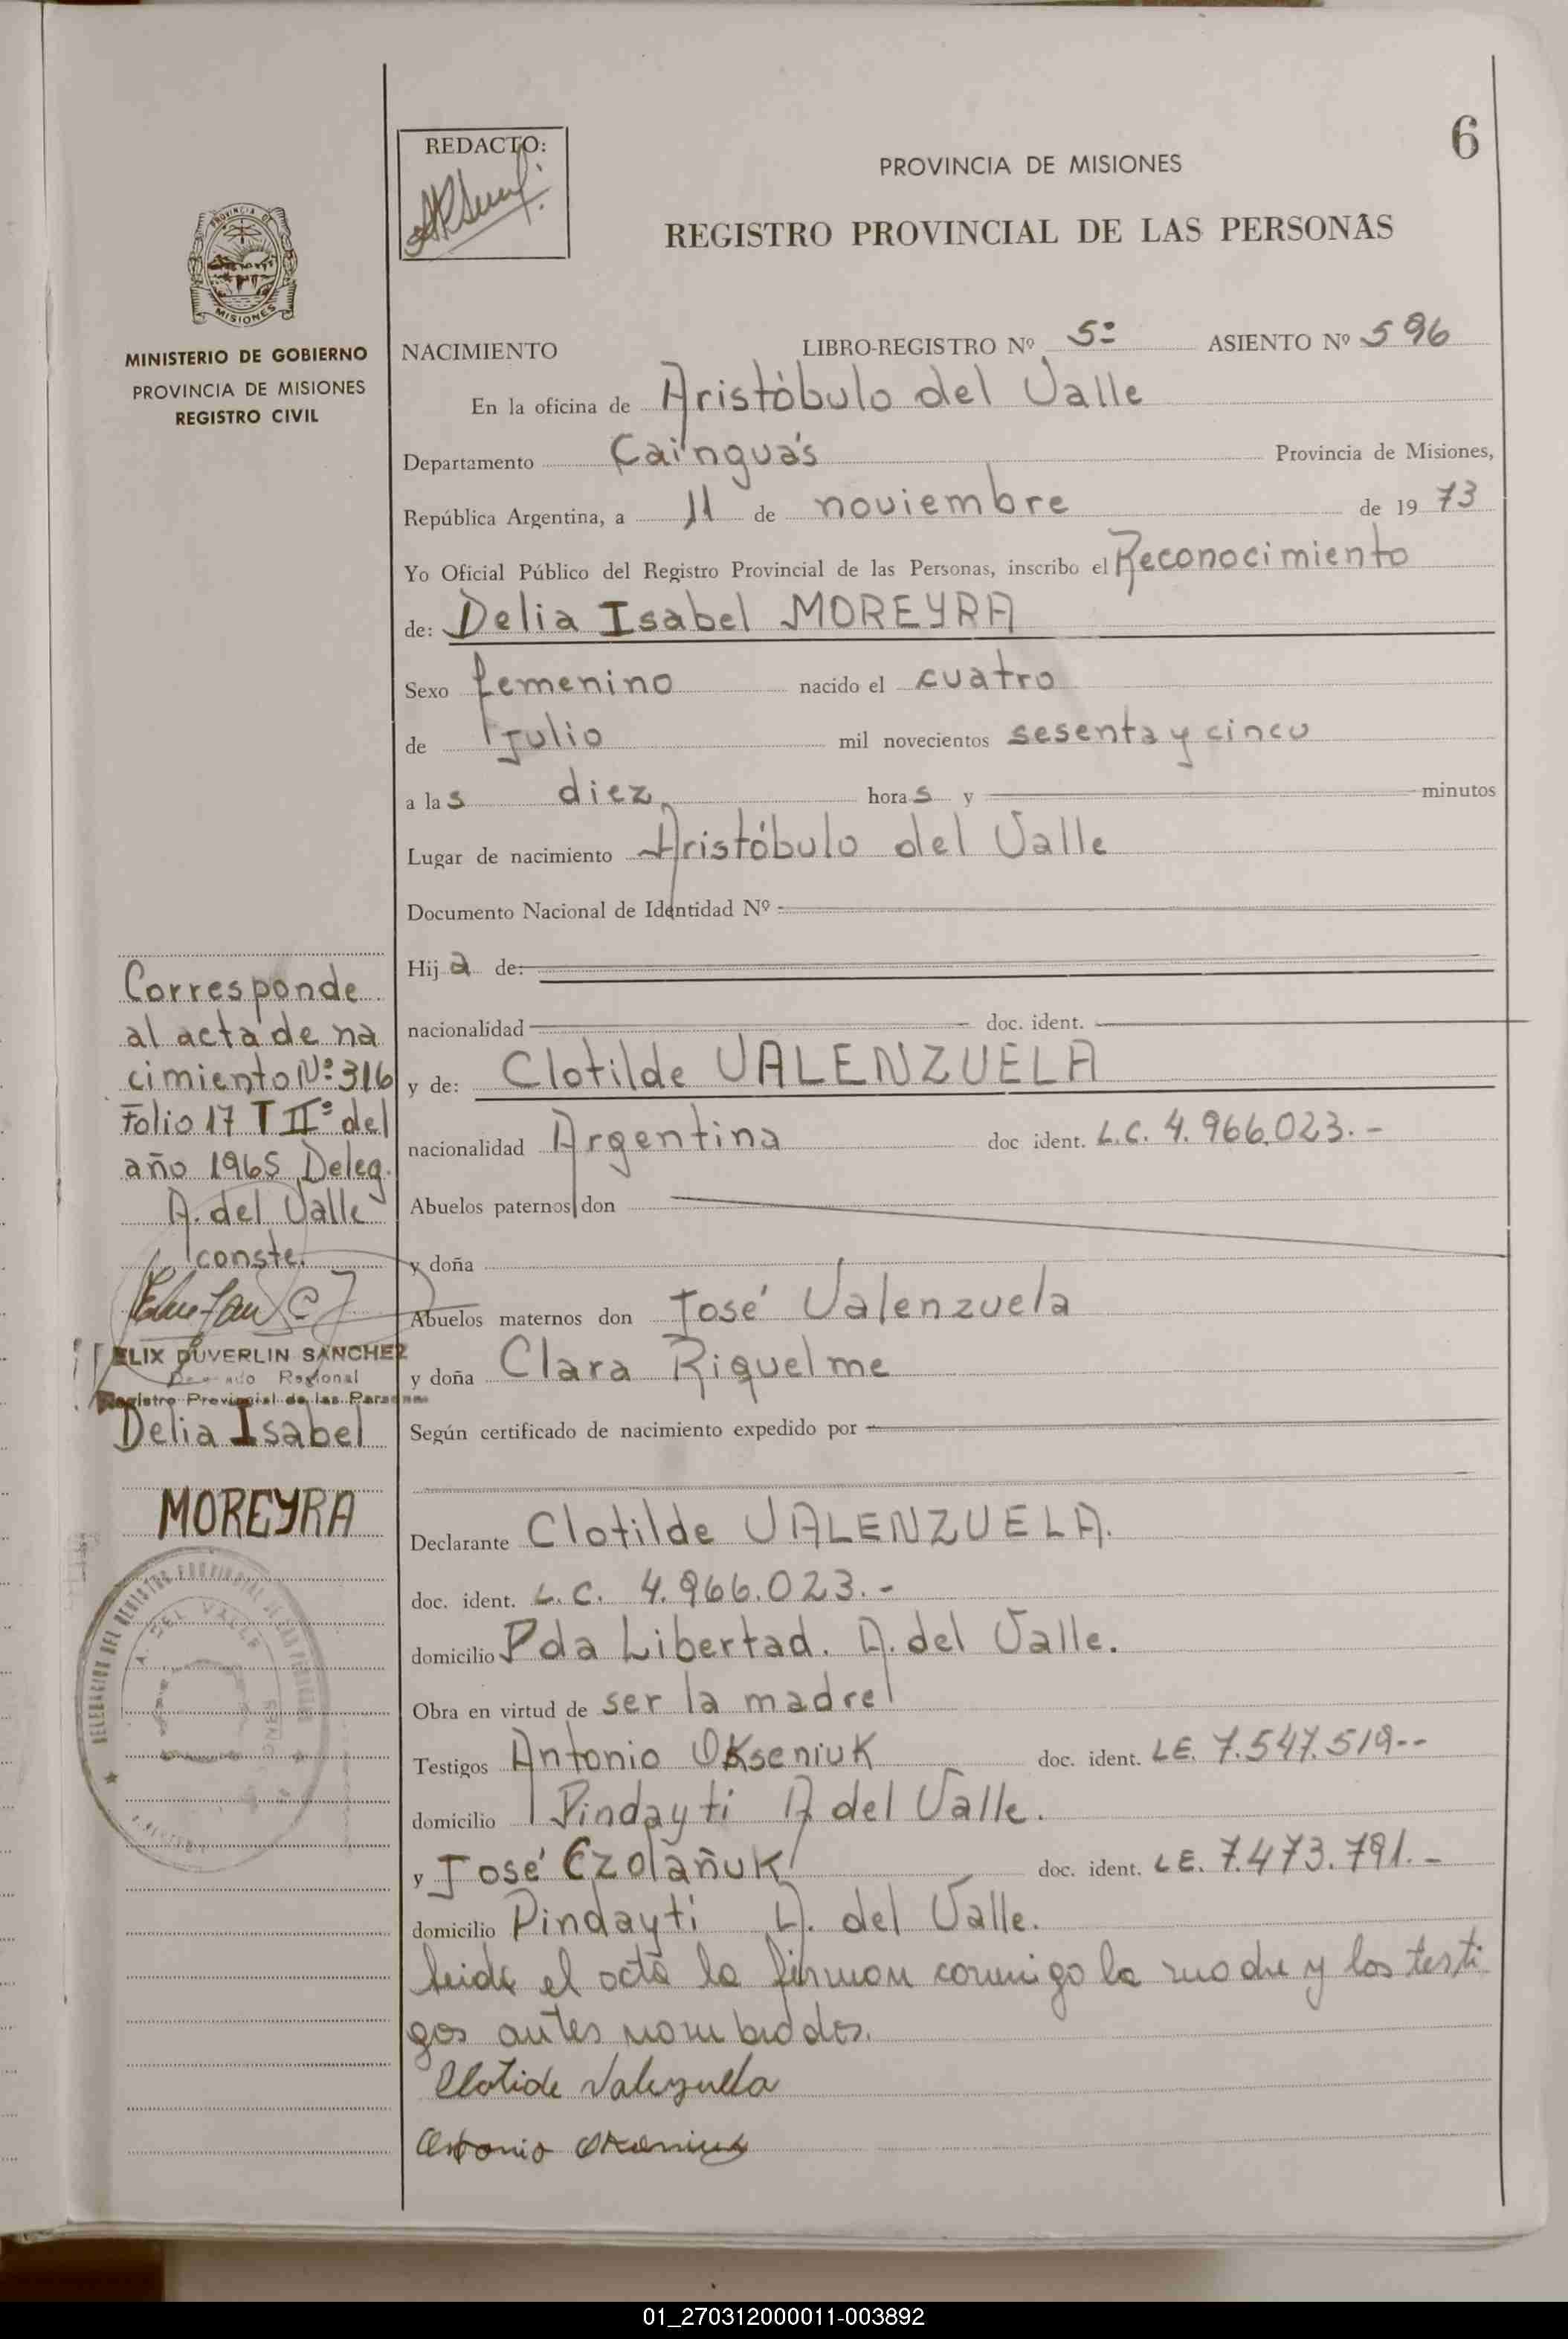 6
REDACTO:
PROVINCIA DE MISIONES
REGISTRO PROVINCIAL DE LAS PERSONAS
PROVINCIA DE
MISIONES
MINISTERIO DE GOBIERNO
PROVINCIA DE MISIONES
REGISTRO CIVIL
NACIMIENTO LIBRO-REGISTRO Nº 5º ASIENTO Nº 596
En la oficina de Aristóbulo del Valle
Departamento Cainguás Provincia de Misiones,
República Argentina, a 11 de noviembre de 1973
Yo Oficial Público del Registro Provincial de las Personas, inscribo el Reconocimiento
de: Delia Isabel MOREYRA
Sexo femenino nacido el cuatro
de Julio mil novecientos sesenta y cinco
a las diez horas y minutos
Lugar de nacimiento Aristóbulo del Valle
Documento Nacional de Identidad Nº
Hija de:
nacionalidad doc. ident.
y de: Clotilde VALENZUELA
nacionalidad Argentina doc ident. L.C. 4.966.023.-
Abuelos paternos don
y doña
Abuelos maternos don José Valenzuela
y doña Clara Riquelme
Según certificado de nacimiento expedido por
Declarante Clotilde VALENZUELA.
doc. ident. L.C. 4.966.023.-
domicilio Pda Libertad. A. del Valle.
Obra en virtud de ser la madre
Testigos Antonio OKseniuK doc. ident. LE. 7.547.519--
domicilio Pindayti A del Valle.
y José CzolañuK doc. ident. LE. 7.473.791.-
domicilio Pindayti A. del Valle.
leida el acta la firman conmigo la madre y los testi
gos antes nombrados.
Clotide Valezuella
Antonio
Corresponde
al acta de na
cimiento Nº 316
Folio 17 T IIº del
año 1965 Deleg.
A. del Valle
conste.
ELIX DUVERLIN SANCHEZ
Delegado Regional
Registro Provincial de las Personas
Delia Isabel
MOREYRA
DELEGACION DEL REGISTRO PROVINCIAL DE LAS PERSONAS
A. DEL VALLE
01_270312000011-003892